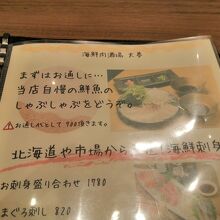 海鮮肉酒場 大春
まずはお通しに…
当店自慢の鮮魚の
しゃぶしゃぶをどうぞ。
お通し代として700頂きます。
北海道や市場から 海鮮刺身
お刺身盛り合わせ 1780
まぐろ刺し 820